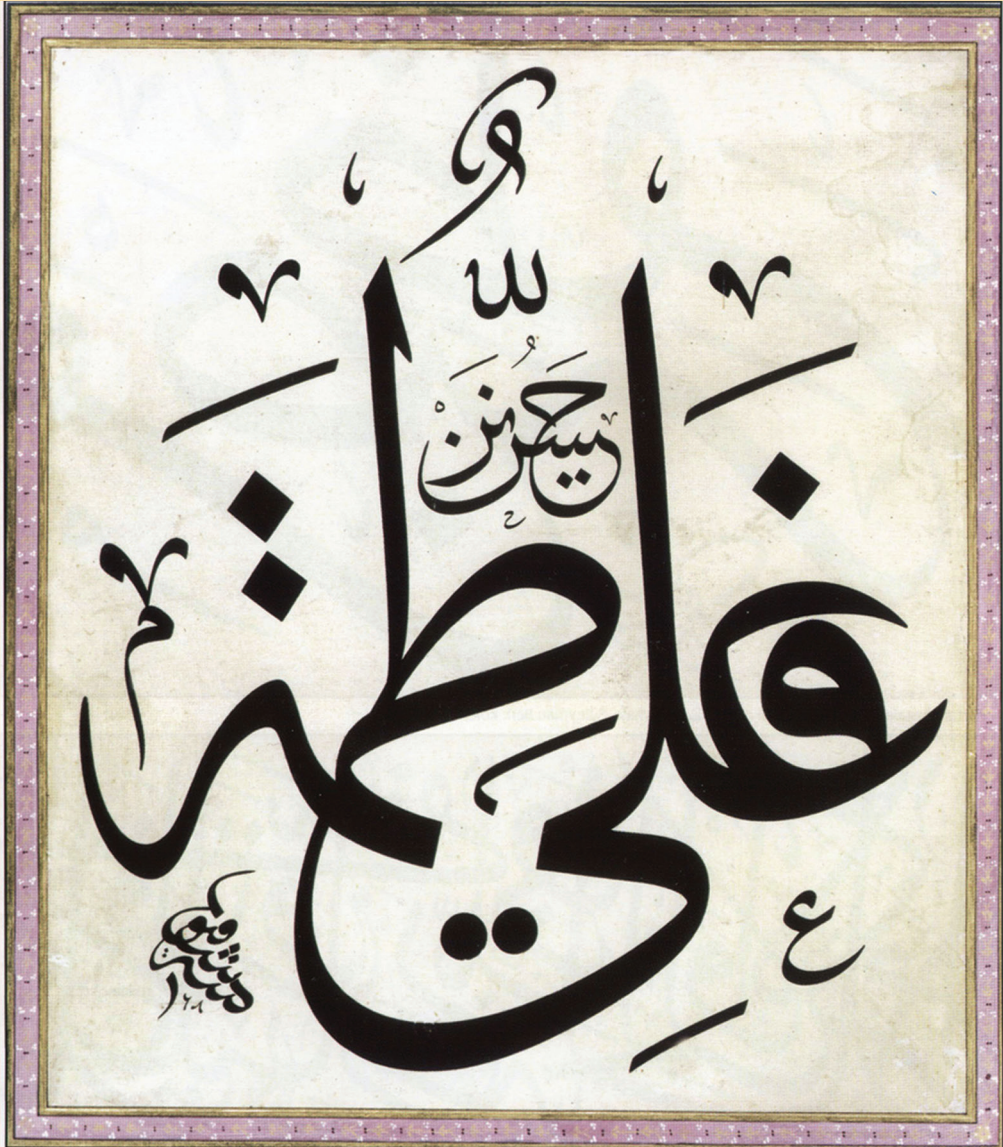 الله
حسن حسين
علي فاطمة